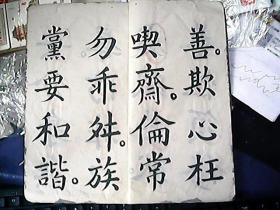 善。欺心枉
喫齋。倫常
勿乖舛。族
黨要和
諧。